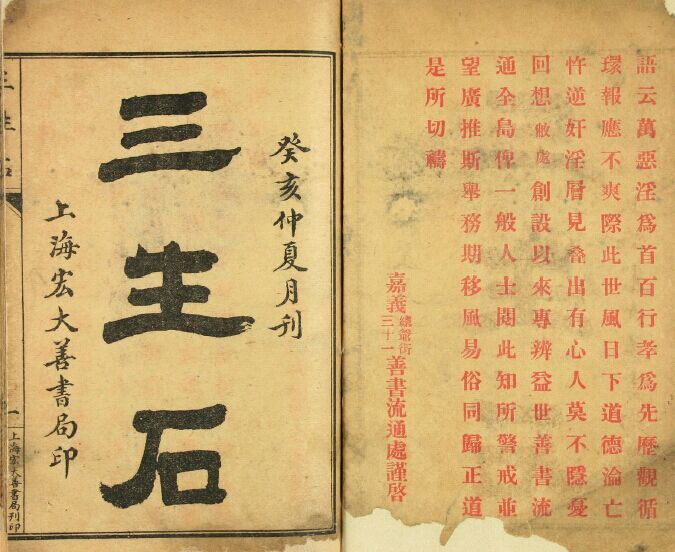 語云萬惡淫爲首百行孝爲先歷觀循
環報應不爽際此世風日下道德淪亡
忤逆奸淫層見叠出有心人莫不隱憂
回想敝處創設以來專辨益世善書流
通全島俾一般人士閱此知所警戒並
望廣推斯舉務期移風易俗同歸正道
是所切禱
嘉義總爺街三十一善書流通處謹啓
癸亥仲夏月刊
三生石
上海宏大善書局印
三生石
一
上海宏大善書局刊印